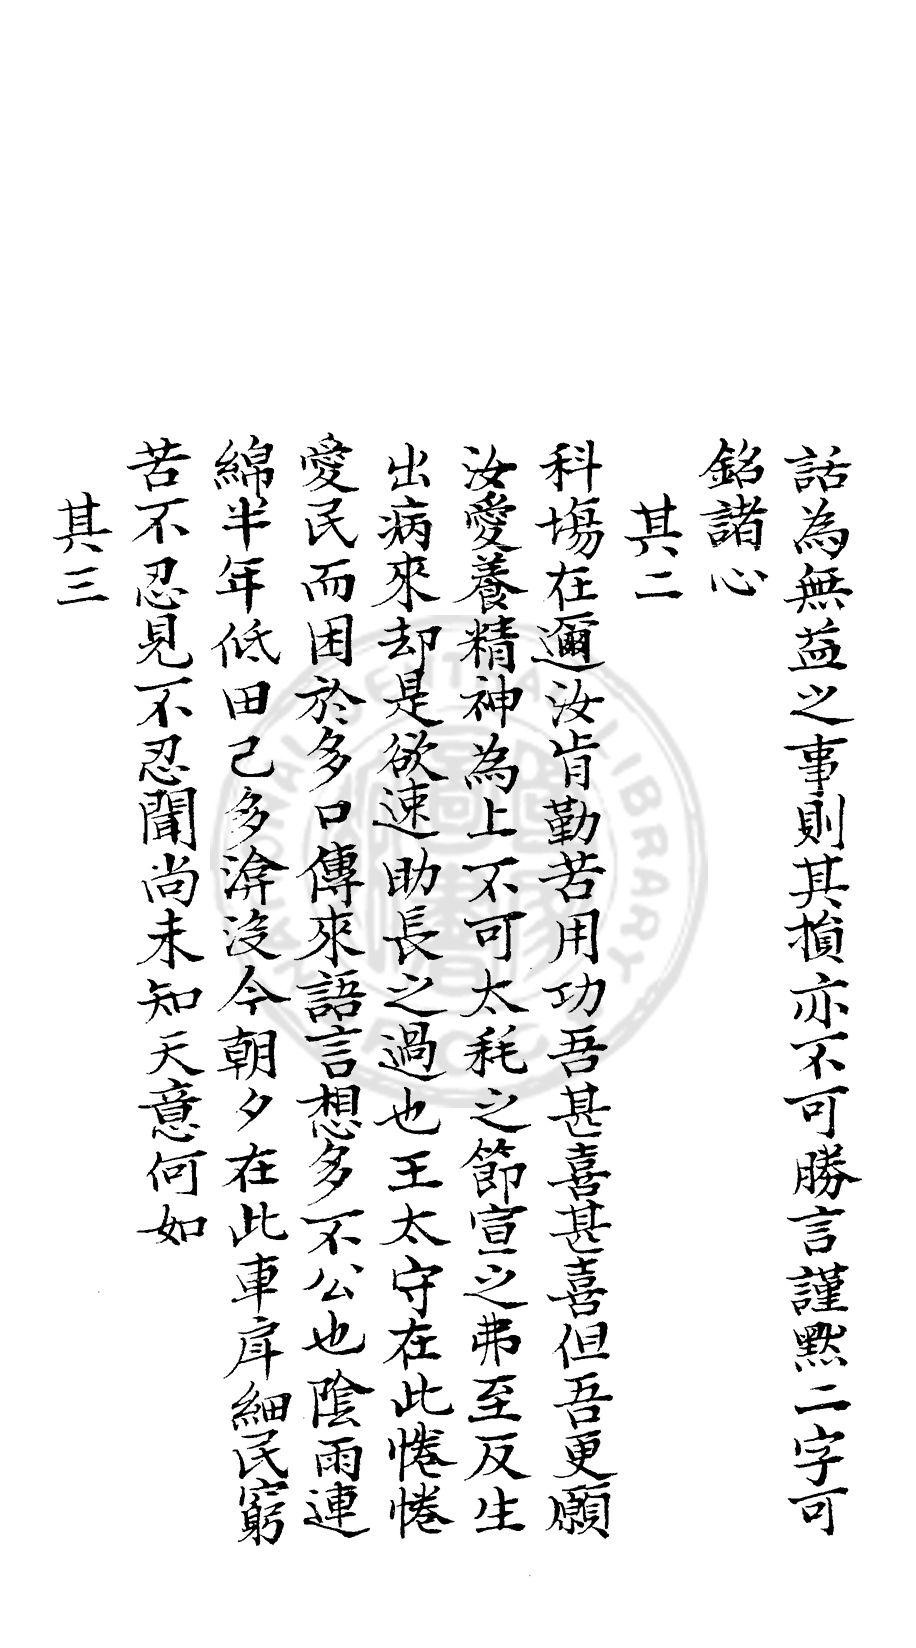 話為無益之事則其損亦不可勝言謹默二字可
銘諸心
其二
科塲在邇汝肯勤苦用功吾甚喜甚喜但吾更願
汝愛養精神為上不可太耗之節宣之弗至反生
出病來却是欲速助長之過也王太守在此惓惓
愛民而困於多口傳來語言想多不公也陰雨連
綿半年低田已多渰没今朝夕在此車戽細民窮
苦不忍見不忍聞尚未知天意何如
其三